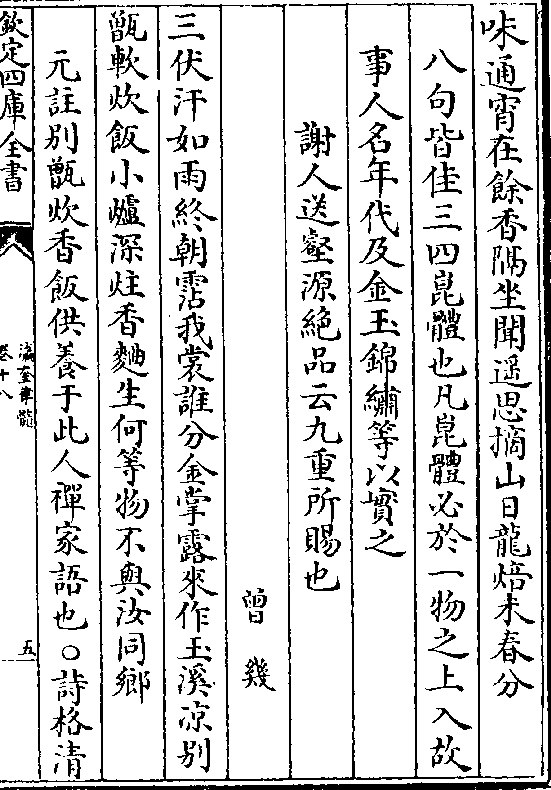 味通宵在餘香隔坐聞遥思摘山日龍焙未春分
八句皆佳三四崑體也凡崑體必於一物之上入故
事人名年代及金玉錦繡等以實之
謝人送壑源絶品云九重所賜也
曾幾
三伏汗如雨終朝霑我裳誰分金掌露來作玉溪凉别
甑軟炊飯小爐深炷香麯生何等物不與汝同鄉
元註别甑炊香飯供養于此人禪家語也○詩格清
欽定四庫全書
瀛奎律髓
卷十八
五